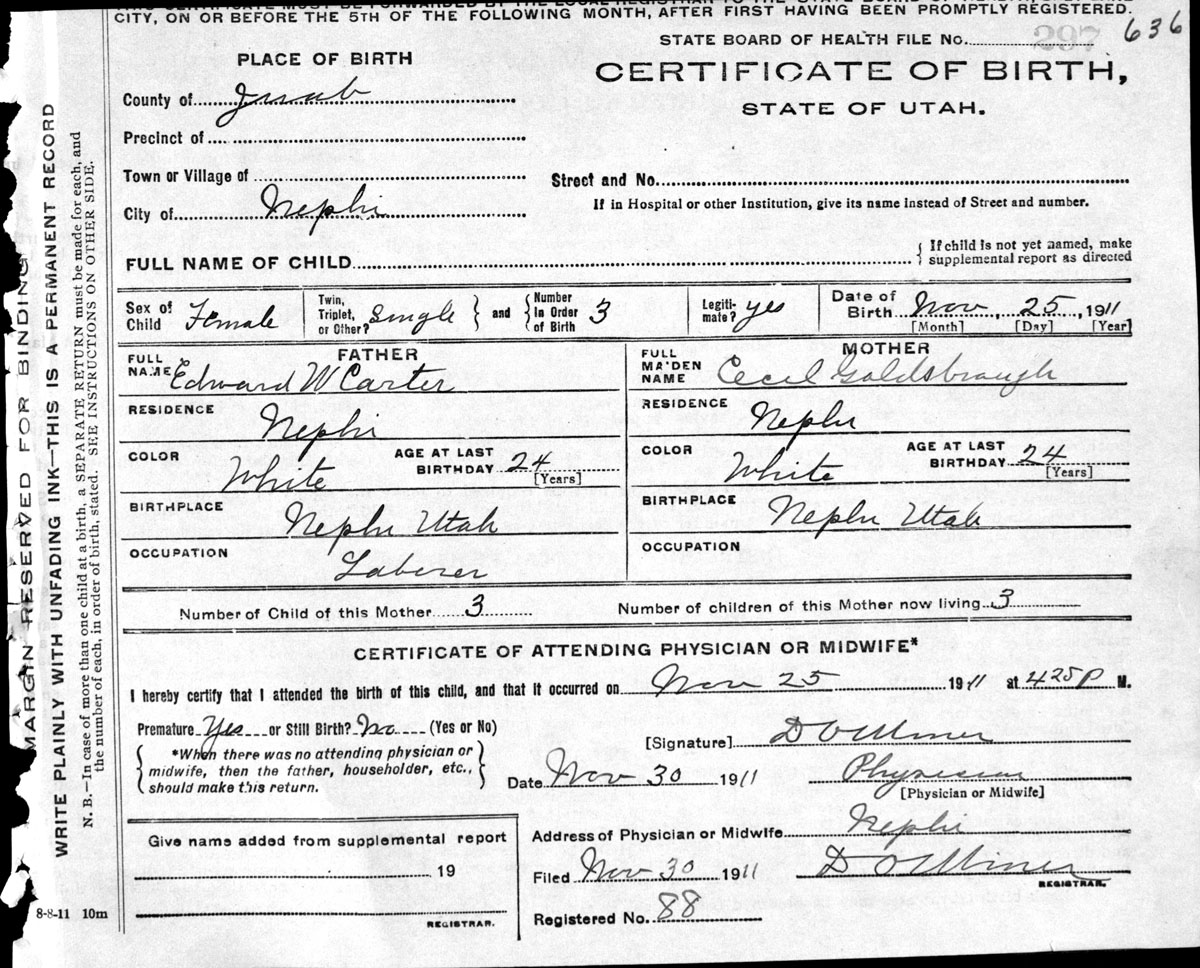 CITY, ON OR BEFORE THE 5TH OF THE FOLLOWING MONTH, AFTER FIRST HAVING BEEN PROMPTLY REGISTERED.
STATE BOARD OF HEALTH FILE No. 297 636
PLACE OF BIRTH
CERTIFICATE OF BIRTH,
STATE OF UTAH.
County of Juab
Precinct of
Town or Village of
Street and No.
City of Nephi
If in Hospital or other Institution, give its name instead of Street and number.
FULL NAME OF CHILD
{ If child is not yet named, make
supplemental report as directed
Sex of Child Female
Twin, Triplet, or Other? Single } and { Number In Order of Birth 3
Legiti-mate? yes
Date of Birth Nov 25, 1911
[Month] [Day] [Year]
FATHER
FULL NAME Edward W Carter
RESIDENCE Nephi
COLOR White
AGE AT LAST BIRTHDAY 24
[Years]
BIRTHPLACE Nephi Utah
OCCUPATION Laborer
MOTHER
FULL MAIDEN NAME Cecil Goldsbraugh
RESIDENCE Nephi
COLOR White
AGE AT LAST BIRTHDAY 24
[Years]
BIRTHPLACE Nephi Utah
OCCUPATION
Number of Child of this Mother 3
Number of children of this Mother now living 3
CERTIFICATE OF ATTENDING PHYSICIAN OR MIDWIFE*
I hereby certify that I attended the birth of this child, and that it occurred on Nov 25 1911 at 425 P M.
Premature Yes or Still Birth? No (Yes or No)
{ *When there was no attending physician or
midwife, then the father, householder, etc.,
should make this return. }
[Signature] D O Miner
Date Nov 30 1911
Physician
[Physician or Midwife]
Give name added from supplemental report
19
REGISTRAR.
Address of Physician or Midwife Nephi
Filed Nov 30 1911 D O Miner
REGISTRAR.
Registered No. 88
8-8-11 10m
MARGIN RESERVED FOR BINDING
WRITE PLAINLY WITH UNFADING INK—THIS IS A PERMANENT RECORD
N. B.—In case of more than one child at a birth, a SEPARATE RETURN must be made for each, and
the number of each, in order of birth, stated. SEE INSTRUCTIONS ON OTHER SIDE.